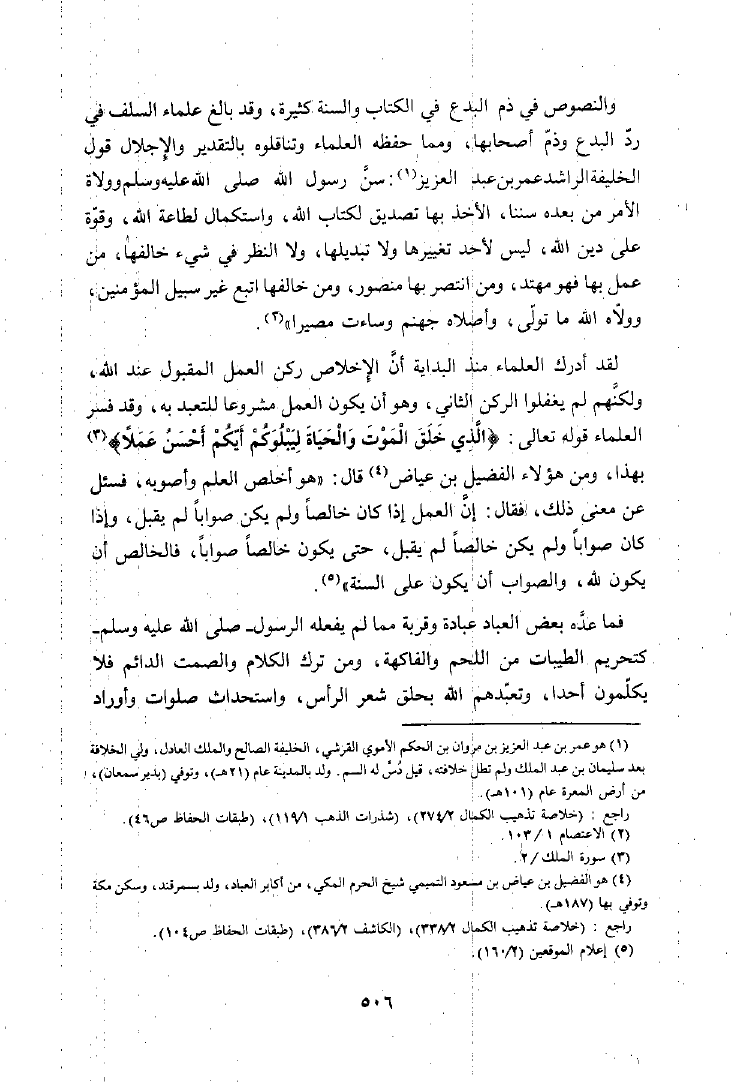 والنصوص في ذم البدع في الكتاب والسنة كثيرة، وقد بالغ علماء السلف في
ردّ البدع وذمّ أصحابها، ومما حفظه العلماء وتناقلوه بالتقدير والإجلال قول
الخليفة الراشد عمر بن عبد العزيز(١): سنَّ رسول الله صلى الله عليه وسلم وولاة
الأمر من بعده سننا، الأخذ بها تصديق لكتاب الله، واستكمال لطاعة الله، وقوّة
على دين الله، ليس لأحد تغييرها ولا تبديلها، ولا النظر في شيء خالفها، من
عمل بها فهو مهتد، ومن انتصر بها منصور، ومن خالفها اتبع غير سبيل المؤمنين،
وولاّه الله ما تولّى، وأصلاه جهنم وساءت مصيرا»(٢).
لقد أدرك العلماء منذ البداية أنَّ الإخلاص ركن العمل المقبول عند الله،
ولكنَّهم لم يغفلوا الركن الثاني، وهو أن يكون العمل مشروعا للتعبد به، وقد فسر
العلماء قوله تعالى: ﴿الَّذِي خَلَقَ الْمَوْتَ وَالْحَيَاةَ لِيَبْلُوَكُمْ أَيُّكُمْ أَحْسَنُ عَمَلًا﴾(٣)
بهذا، ومن هؤلاء الفضيل بن عياض(٤) قال: «هو أخلص العلم وأصوبه، فسئل
عن معنى ذلك، فقال: إنَّ العمل إذا كان خالصاً ولم يكن صواباً لم يقبل، وإذا
كان صواباً ولم يكن خالصاً لم يقبل، حتى يكون خالصاً صواباً، فالخالص أن
يكون لله، والصواب أن يكون على السنة»(٥).
فما عدَّه بعض العباد عبادة وقربة مما لم يفعله الرسول - صلى الله عليه وسلم -
كتحريم الطيبات من اللحم والفاكهة، ومن ترك الكلام والصمت الدائم فلا
يكلّمون أحدا، وتعبّدهم الله بحلق شعر الرأس، واستحداث صلوات وأوراد
(١) هو عمر بن عبد العزيز بن مروان بن الحكم الأموي القرشي، الخليفة الصالح والملك العادل، ولي الخلافة
بعد سليمان بن عبد الملك ولم تطل خلافته، قيل دُسَّ له السم. ولد بالمدينة عام (٢١هـ)، وتوفي (بدير سمعان)،
من أرض المعرة عام (١٠١هـ).
راجع : (خلاصة تذهيب الكمال ٢٧٤/٢)، (شذرات الذهب ١١٩/١)، (طبقات الحفاظ ص٤٦).
(٢) الاعتصام ١٠٣/١.
(٣) سورة الملك/٢.
(٤) هو الفضيل بن عياض بن مسعود التميمي شيخ الحرم المكي، من أكابر العباد، ولد بسمرقند، وسكن مكة
وتوفي بها (١٨٧هـ).
راجع : (خلاصة تذهيب الكمال ٣٣٨/٢)، (الكاشف ٣٨٦/٢)، (طبقات الحفاظ ص١٠٤).
(٥) إعلام الموقعين (١٦٠/٢).
٥٠٦